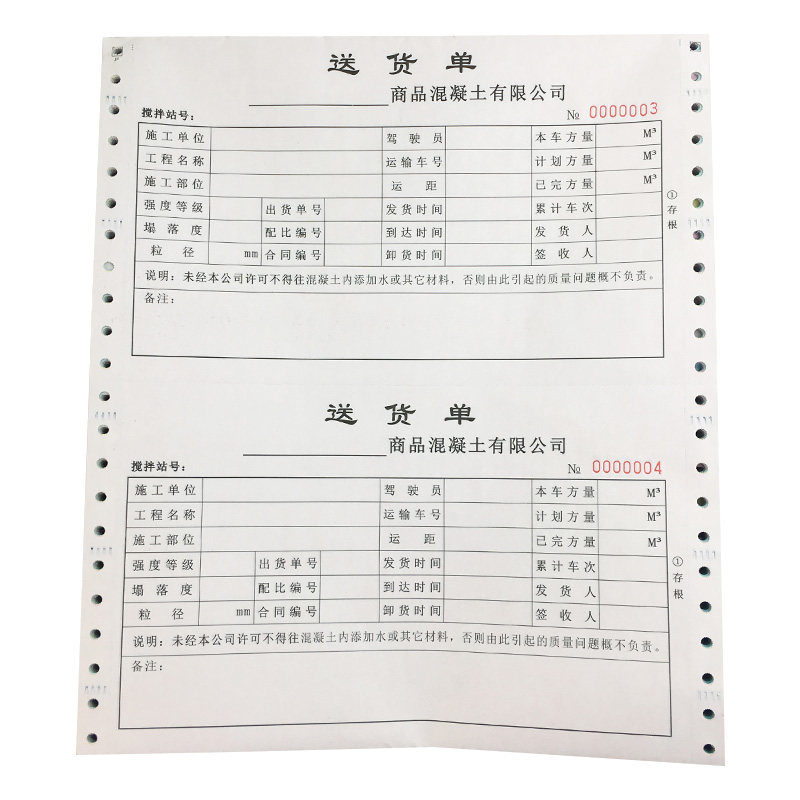 送货单
商品混凝土有限公司
搅拌站号： № 0000003
施工单位 驾驶员 本车方量 M³
工程名称 运输车号 计划方量 M³
施工部位 运距 已完方量 M³
强度等级 出货单号 发货时间 累计车次
塌落度 配比编号 到达时间 发货人
粒径 mm 合同编号 卸货时间 签收人
说明：未经本公司许可不得往混凝土内添加水或其它材料，否则由此引起的质量问题概不负责。
备注：
①存根
送货单
商品混凝土有限公司
搅拌站号： № 0000004
施工单位 驾驶员 本车方量 M³
工程名称 运输车号 计划方量 M³
施工部位 运距 已完方量 M³
强度等级 出货单号 发货时间 累计车次
塌落度 配比编号 到达时间 发货人
粒径 mm 合同编号 卸货时间 签收人
说明：未经本公司许可不得往混凝土内添加水或其它材料，否则由此引起的质量问题概不负责。
备注：
①存根